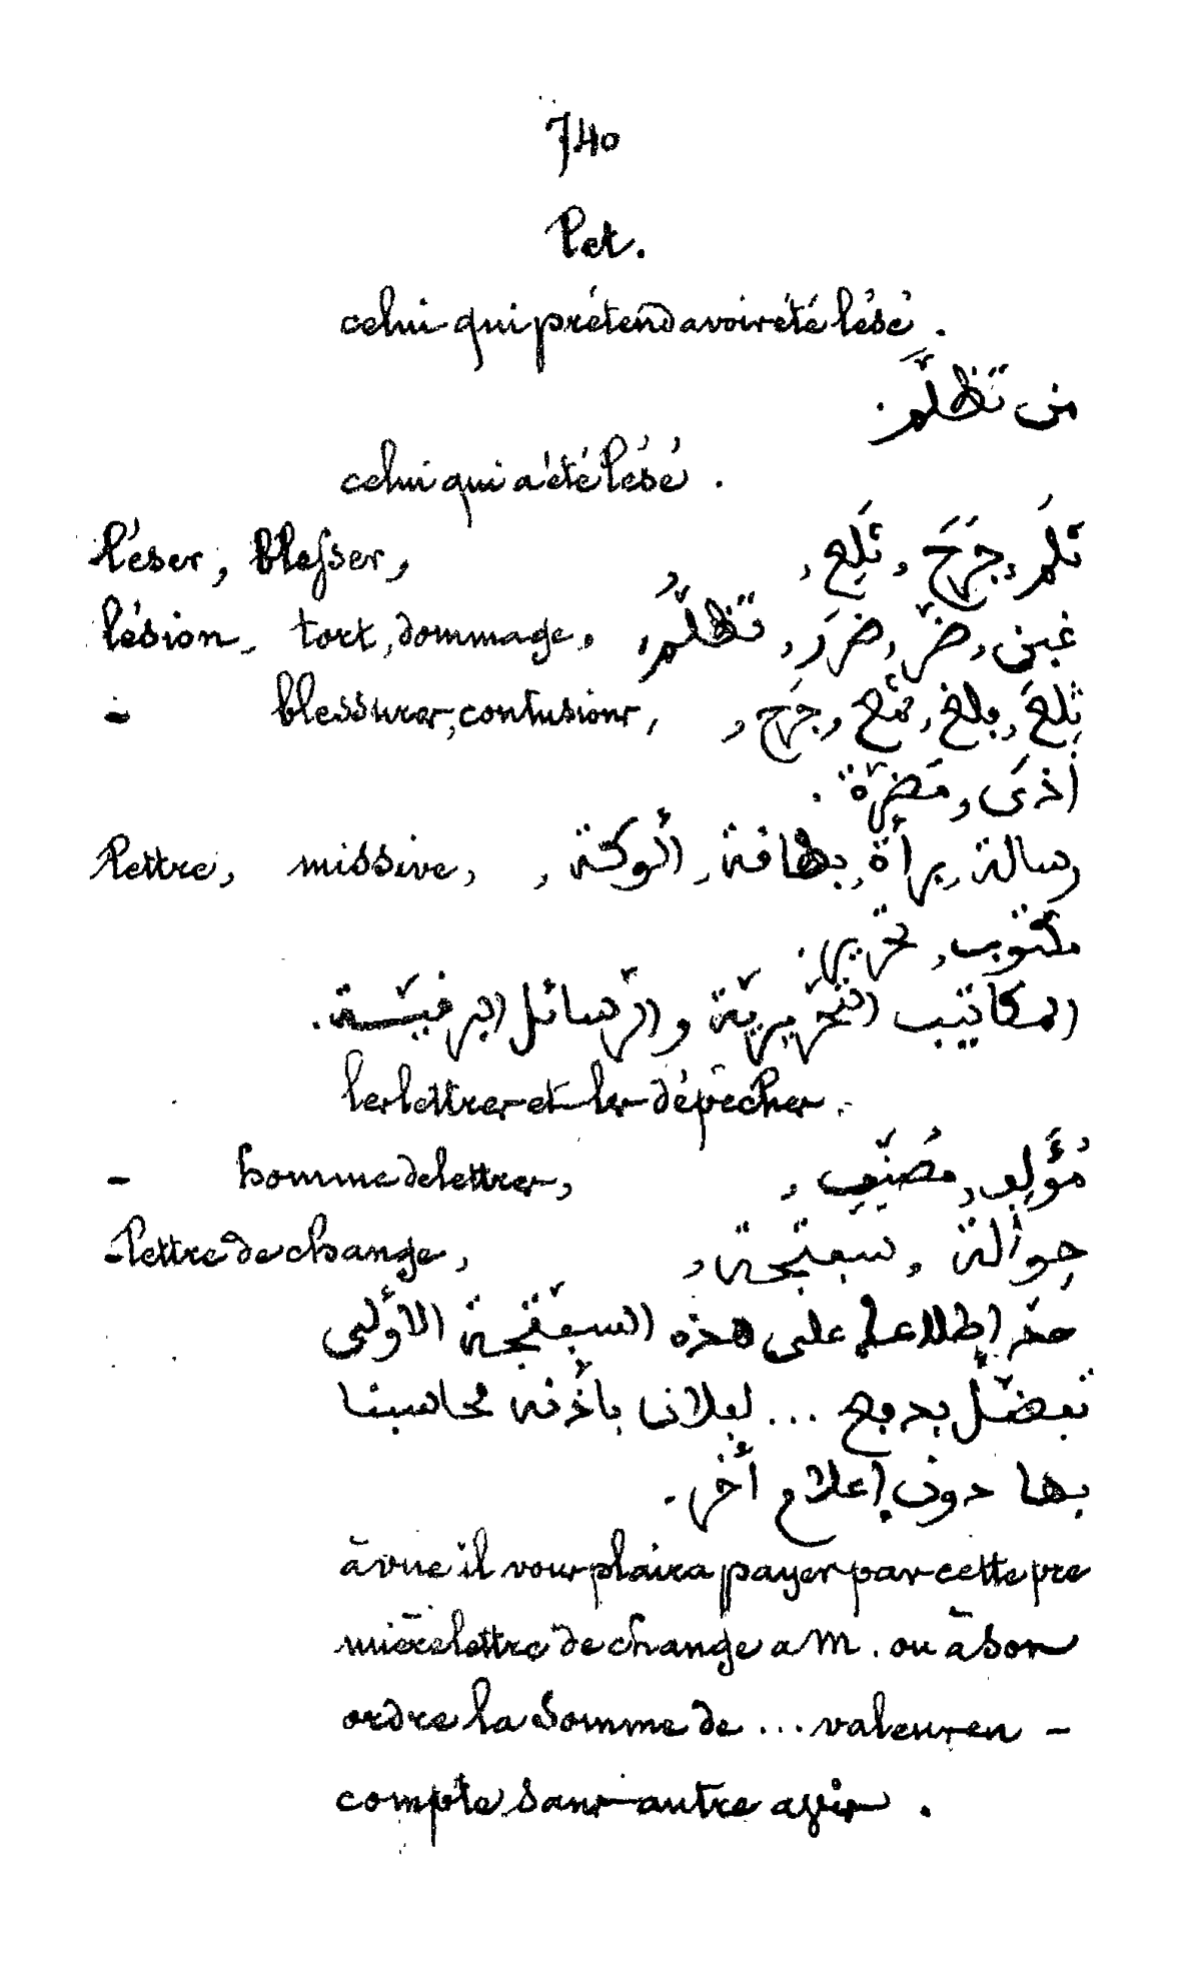 740
Let.
celui qui prétend avoir été lésé.
من تَظَلَّم.
celui qui a été lésé.
léser, blesser, ثَلَمَ, جَرَحَ, ثَلِغَ,
lésion, tort, dommage, غبن, ضرّ, ضرَر, تَظَلُّم,
- blessures, contusions, جَرح,
أذىً, مَضرّة.
lettre, missive, رسالة, برأة, بطاقة, ألوكة,
مكتوب, تحرير.
المكاتيب التحريريّة والرّسائل البرقيّة.
les lettres et les dépêches.
- homme de lettres, مُؤَلِّف, مُصَنِّف,
- lettre de change, حِوالة, سفتجة,
عند إطلاعكم على هذه السفتجة الأولى
تفضّل بدفع ... لفلان بإذنه محاسبنا
بها دون إعلام أخر.
à vue il vous plaira payer par cette pre
mière lettre de change a M. ou à son
ordre la somme de ... valeur en -
compte sans autre avis.